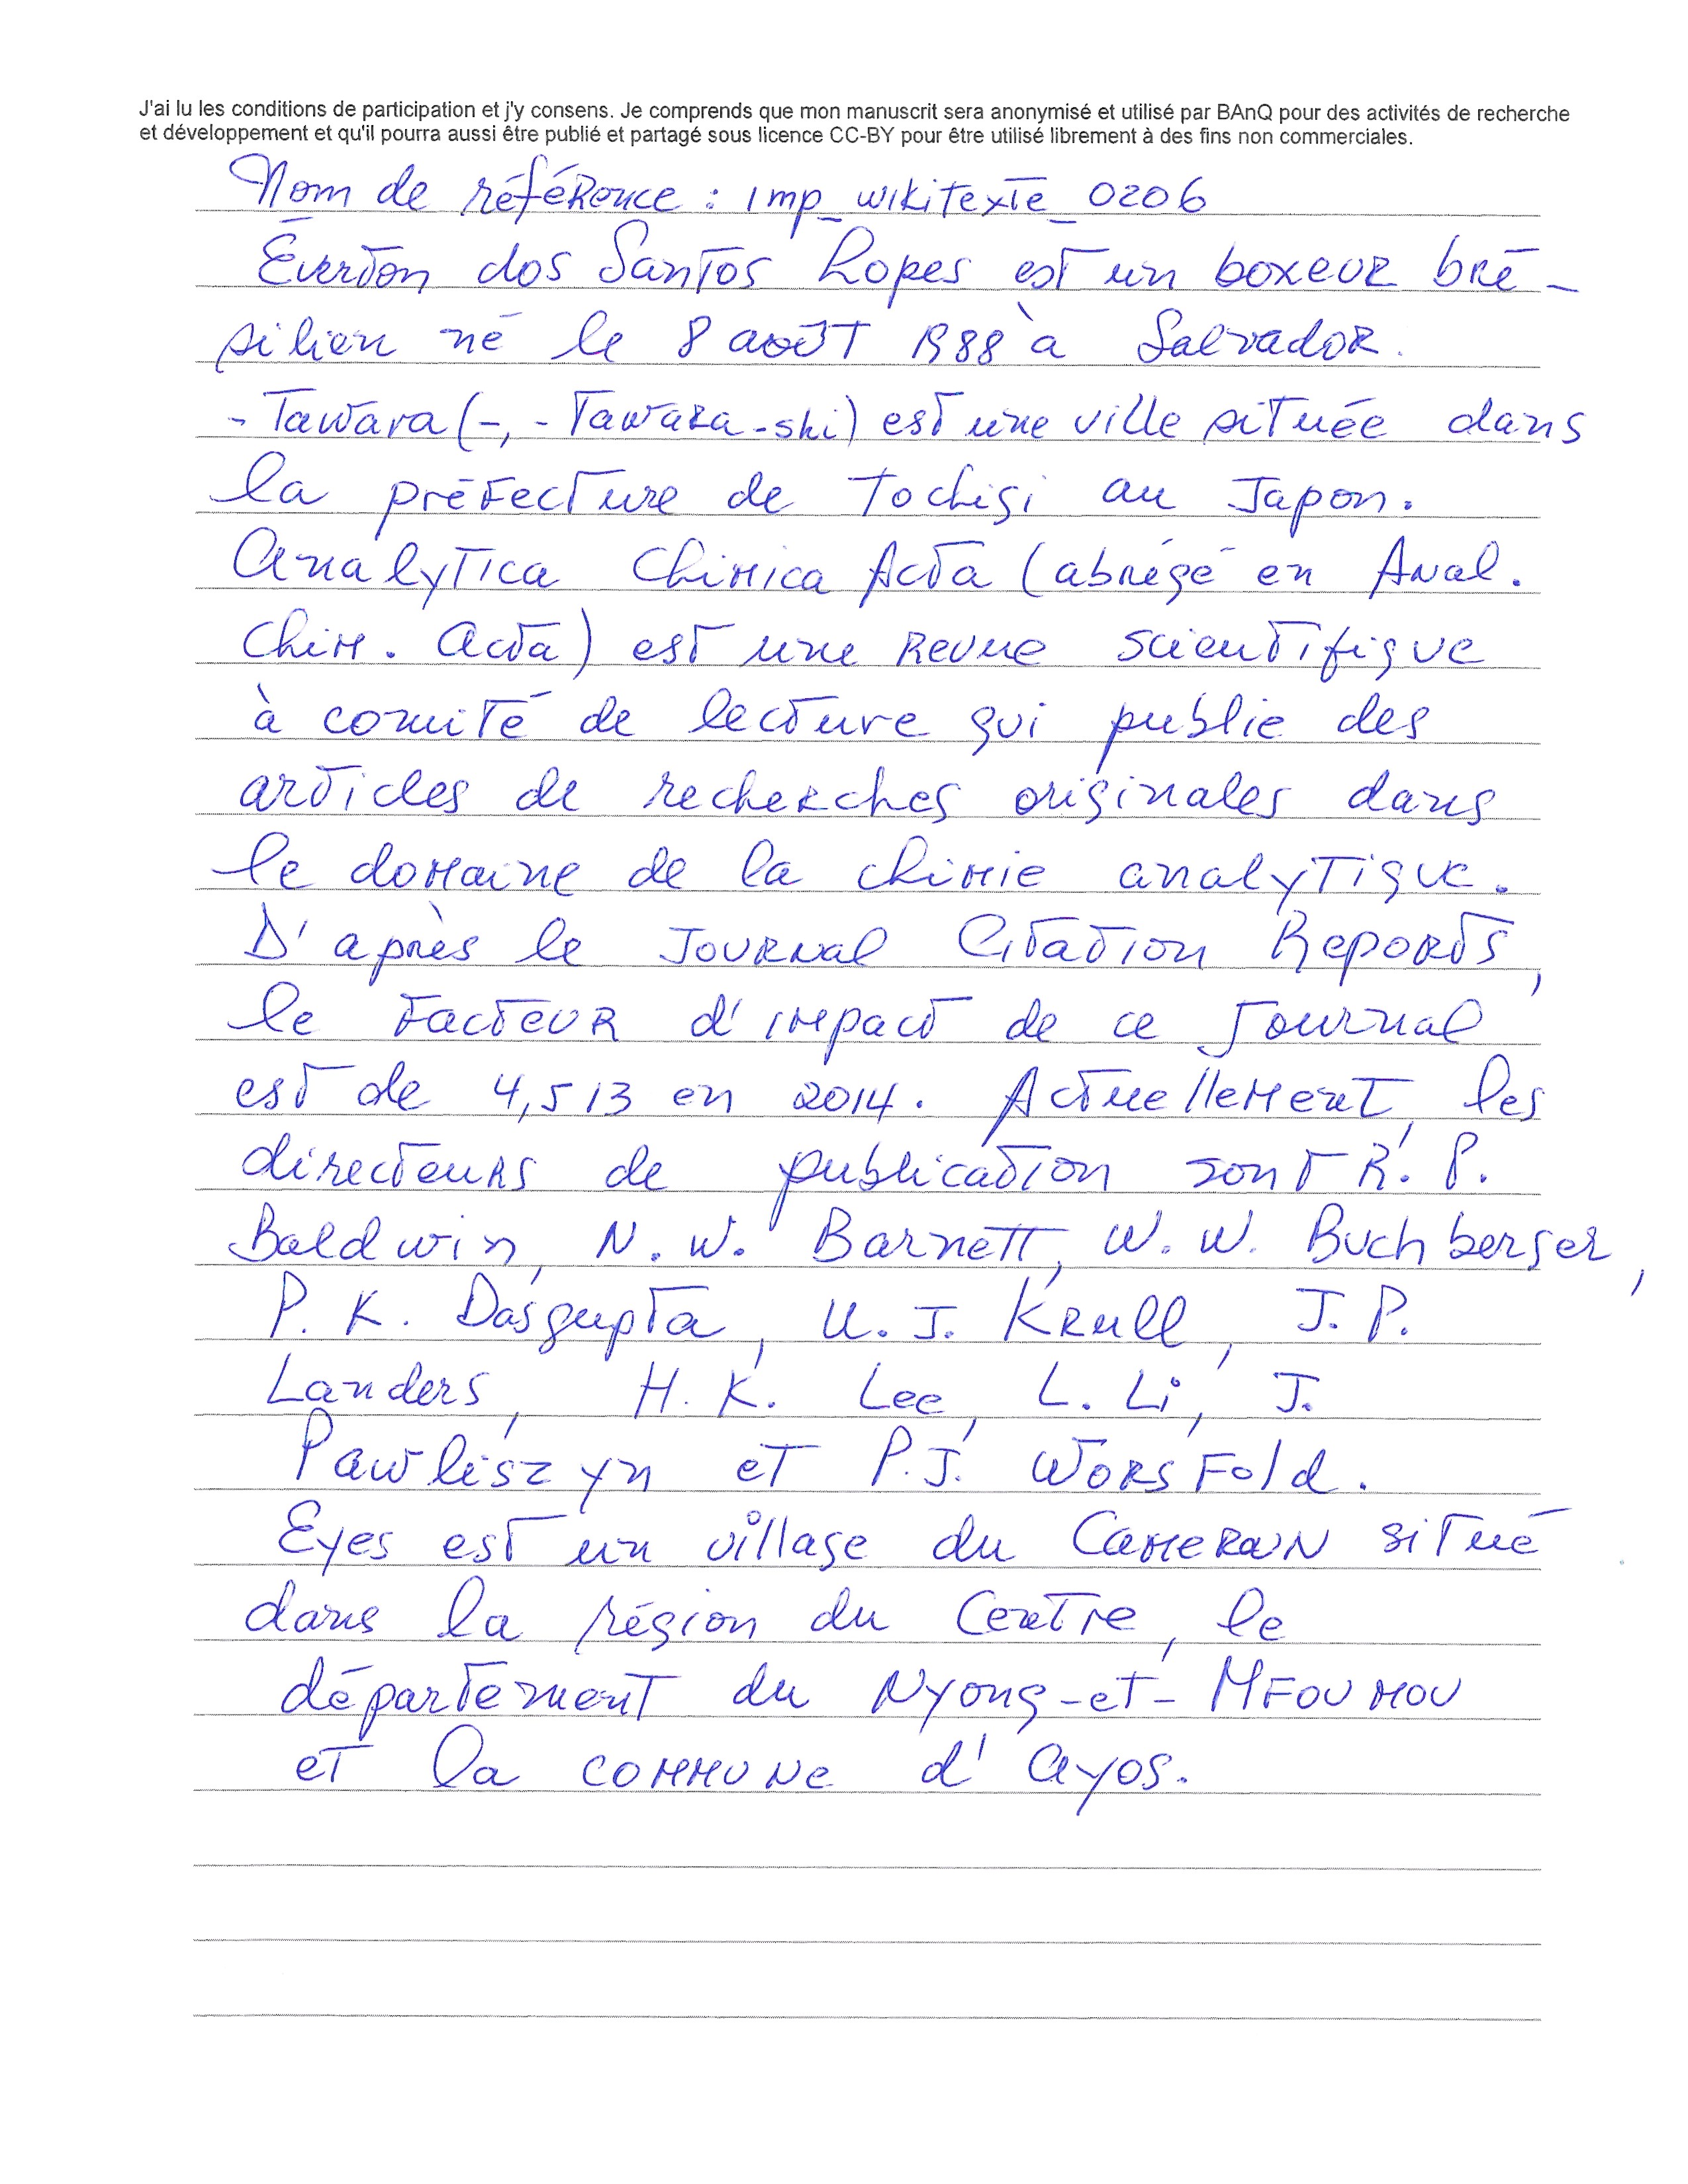 J'ai lu les conditions de participation et j'y consens. Je comprends que mon manuscrit sera anonymisé et utilisé par BAnQ pour des activités de recherche
et développement et qu'il pourra aussi être publié et partagé sous licence CC-BY pour être utilisé librement à des fins non commerciales.
Nom de référence : imp_wikitexte_0206
Éverton dos Santos Lopes est un boxeur bré-
silien né le 8 août 1988 à Salvador.
-Tawara (-, -Tawara-shi) est une ville située dans
la préfecture de Tochigi au Japon.
Analytica Chimica Acta (abrégé en Anal.
Chim. Acta) est une revue scientifique
à comité de lecture qui publie des
articles de recherches originales dans
le domaine de la chimie analytique.
D'après le Journal Citation Reports,
le facteur d'impact de ce journal
est de 4,513 en 2014. Actuellement, les
directeurs de publication sont R. P.
Baldwin, N. W. Barnett, W. W. Buchberger,
P. K. Dasgupta, U. J. Krull, J. P.
Landers, H. K. Lee, L. Li, J.
Pawliszyn et P. J. Worsfold.
Eyes est un village du Cameroun situé
dans la région du Centre, le
département du Nyong-et-Mfoumou
et la commune d'Ayos.